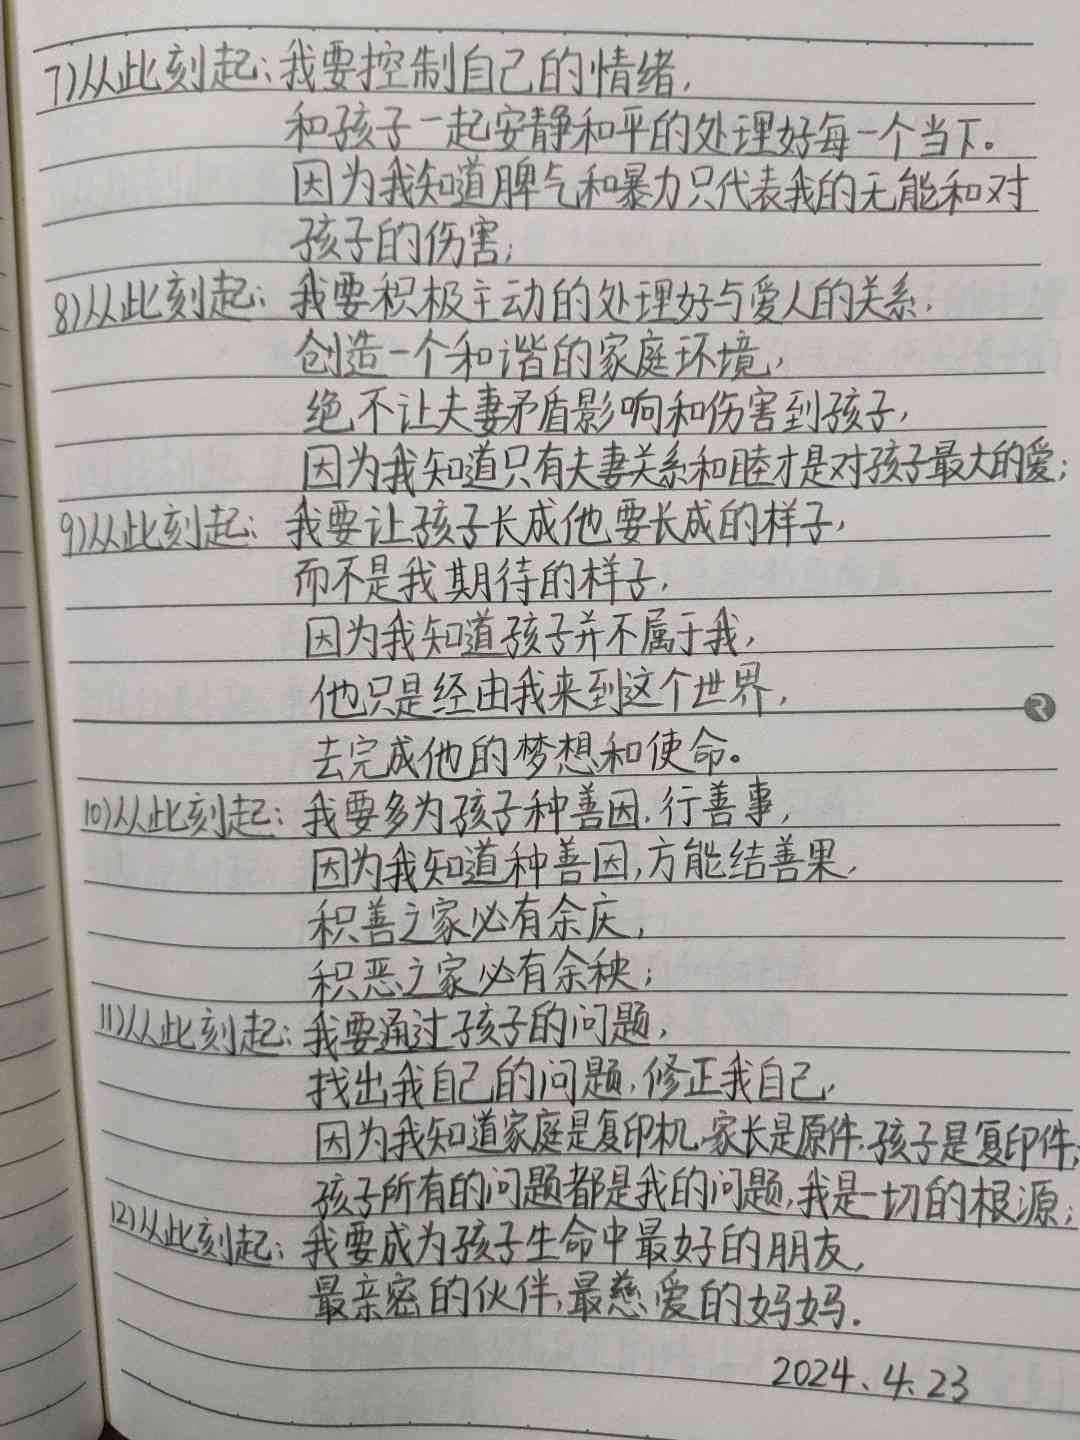 7)从此刻起:我要控制自己的情绪,
和孩子一起安静和平的处理好每一个当下。
因为我知道脾气和暴力只代表我的无能和对
孩子的伤害;
8)从此刻起:我要积极主动的处理好与爱人的关系,
创造一个和谐的家庭环境,
绝不让夫妻矛盾影响和伤害到孩子,
因为我知道只有夫妻关系和睦才是对孩子最大的爱;
9)从此刻起:我要让孩子长成他要长成的样子,
而不是我期待的样子,
因为我知道孩子并不属于我,
他只是经由我来到这个世界,
去完成他的梦想和使命。
10)从此刻起:我要多为孩子种善因,行善事,
因为我知道种善因,方能结善果,
积善之家必有余庆,
积恶之家必有余秧;
11)从此刻起:我要通过孩子的问题,
找出我自己的问题,修正我自己,
因为我知道家庭是复印机,家长是原件,孩子是复印件,
孩子所有的问题都是我的问题,我是一切的根源;
12)从此刻起:我要成为孩子生命中最好的朋友,
最亲密的伙伴,最慈爱的妈妈.
2024.4.23